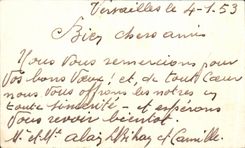 Versailles le 4-1.53
Bien chers amis
Nous vous remercions pour
vos bons vœux; et, de tout cœur
nous vous offrons les nôtres en
toute sincérité - et espérons
vous revoir bientôt.
Mr et Me Alain et Camille.